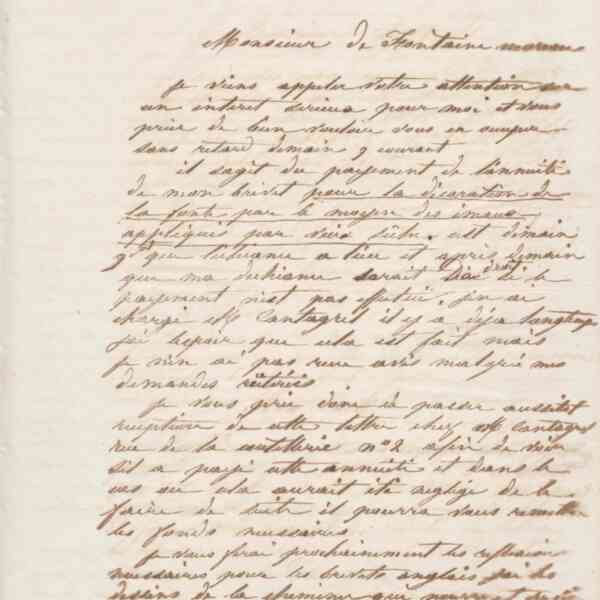 Monsieur de Fontaine moreau
je viens appeler votre attention sur
un interet serieux pour moi et vous
prier de bien vouloir vous en occuper
sans retard demain 9 courant
il sagit du payement de l'annuité
de mon brevet pour la décoration de
la fonte par le moyen des émaux
appliqués par voie sèche. est demain
9 que l'échéance a lieu et après demain
que ma déchéance serait de droit si le
payement n'est pas effectué. j'en ai
chargé Mr Cantagrel il y a déja longtemps
j'ai l'espoir que cela est fait mais
je n'en ai pas reçu avis malgré mes
demandes réitérées
je vous prie donc de passer aussitot
reception de cette lettre chez Mr Cantagrel
rue de la coutellerie n° 2 afin de voir
s'il a payé cette annuité et dans le
cas ou cela aurait été negligé de le
faire de suite il pourra vous remettre
les fonds necessaires.
je vous ferai prochainement les reflexions
necessaires pour les brevets anglais j'ai les
dessins de la cheminée qui